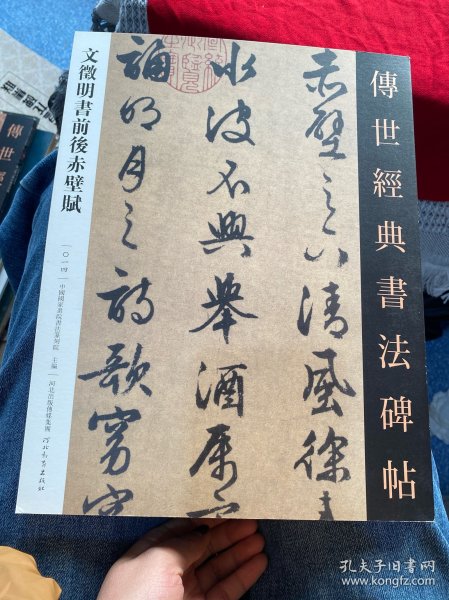 傳世經典書法碑帖
赤壁之下清風徐
水波不興舉酒屬
誦明月之詩歌窈
文徵明書前後赤壁賦
〇一四
中國國家畫院書法篆刻院 主編
河北出版傳媒集團
河北教育出版社
傳世
孔夫子旧书网
www.kongfz.com